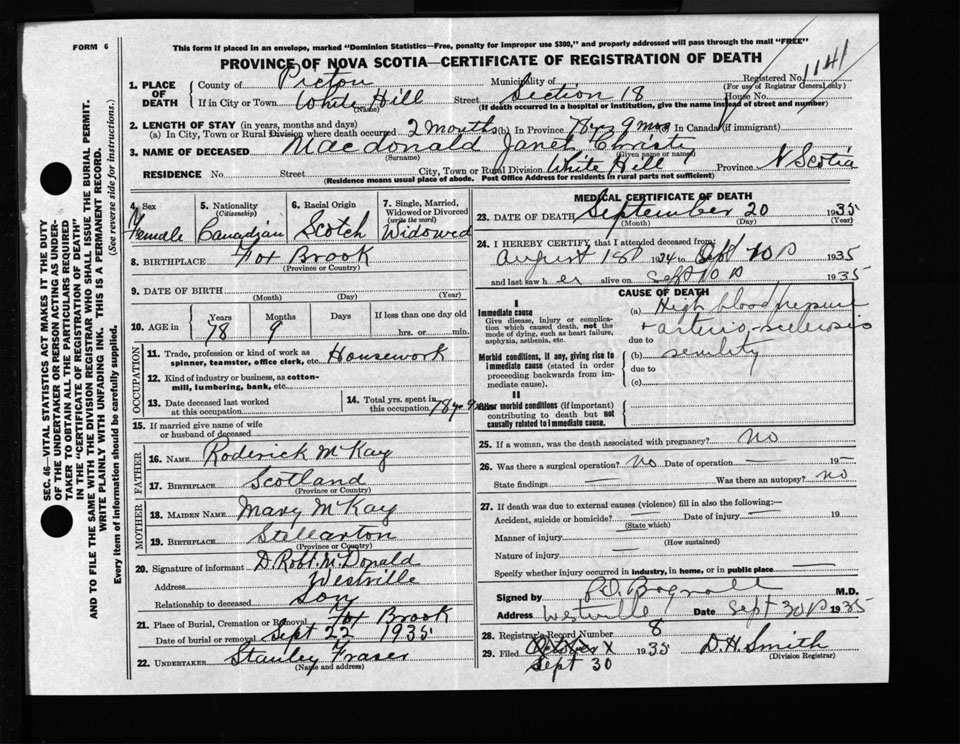 FORM 6
This form if placed in an envelope, marked "Dominion Statistics—Free, penalty for improper use $300," and properly addressed will pass through the mail "FREE"
PROVINCE OF NOVA SCOTIA—CERTIFICATE OF REGISTRATION OF DEATH
1141
1. PLACE OF DEATH
County of Pictou Municipality of Registered No.
(For use of Registrar General only)
If in City or Town White Hill Street Section 18 House No.
(Name) (If death occurred in a hospital or institution, give the name instead of street and number)
2. LENGTH OF STAY (in years, months and days)
(a) In City, Town or Rural Division where death occurred 2 months (b) In Province 78 yrs 9 mos In Canada (if immigrant)
3. NAME OF DECEASED Macdonald Janet Christy
(Surname) (Given name or names)
RESIDENCE No. Street City, Town or Rural Division White Hill Province N Scotia
(Residence means usual place of abode. Post Office Address for residents in rural parts not sufficient)
4. Sex Female
5. Nationality (Citizenship) Canadian
6. Racial Origin Scotch
7. Single, Married, Widowed or Divorced (write the word) Widowed
8. BIRTHPLACE Fox Brook
(Province or Country)
9. DATE OF BIRTH
(Month) (Day) (Year)
10. AGE in Years Months Days If less than one day old
78 9 hrs. or min.
OCCUPATION
11. Trade, profession or kind of work as spinner, teamster, office clerk, etc. Housework
12. Kind of industry or business, as cotton-mill, lumbering, bank, etc.
13. Date deceased last worked at this occupation
14. Total yrs. spent in this occupation 78 yr 9
15. If married give name of wife or husband of deceased
FATHER
16. NAME Roderick McKay
17. BIRTHPLACE Scotland
(Province or Country)
MOTHER
18. MAIDEN NAME Mary McKay
19. BIRTHPLACE Stellarton
(Province or Country)
20. Signature of informant D. Robt. McDonald
Address Westville
Relationship to deceased Son
21. Place of Burial, Cremation or Removal Fox Brook
Date of burial or removal Sept 22 1935
22. UNDERTAKER Stanley Fraser
(Name and address)
MEDICAL CERTIFICATE OF DEATH
23. DATE OF DEATH September 20 1935
(Month) (Day) (Year)
24. I HEREBY CERTIFY that I attended deceased from:
August 1934 to Sept 1935
and last saw her alive on Sept 1935
CAUSE OF DEATH
I
Immediate cause
Give disease, injury or complication which caused death, not the mode of dying, such as heart failure, asphyxia, asthenia, etc.
(a) High blood pressure
+ arterio-sclerosis
due to
Morbid conditions, if any, giving rise to immediate cause (stated in order proceeding backwards from immediate cause).
(b) senility
due to
(c)
II
Other morbid conditions (if important) contributing to death but not causally related to immediate cause.
25. If a woman, was the death associated with pregnancy? no
26. Was there a surgical operation? no Date of operation — 19—
State findings — Was there an autopsy? no
27. If death was due to external causes (violence) fill in also the following:—
Accident, suicide or homicide? — Date of injury — 19
(State which)
Manner of injury
(How sustained)
Nature of injury —
Specify whether injury occurred in industry, in home, or in public place —
Signed by M.D.
Address Westville Date Sept 30 1935
28. Registrar's Record Number 8
29. Filed October 1935 D. H. Smith
Sept 30 (Division Registrar)
SEC. 46—VITAL STATISTICS ACT MAKES IT THE DUTY
OF THE UNDERTAKER OR PERSON ACTING AS UNDER-
TAKER TO OBTAIN ALL THE PARTICULARS REQUIRED
IN THE "CERTIFICATE OF REGISTRATION OF DEATH"
AND TO FILE THE SAME WITH THE DIVISION REGISTRAR WHO SHALL ISSUE THE BURIAL PERMIT.
WRITE PLAINLY WITH UNFADING INK. THIS IS A PERMANENT RECORD.
Every item of information should be carefully supplied. (See reverse side for instructions.)